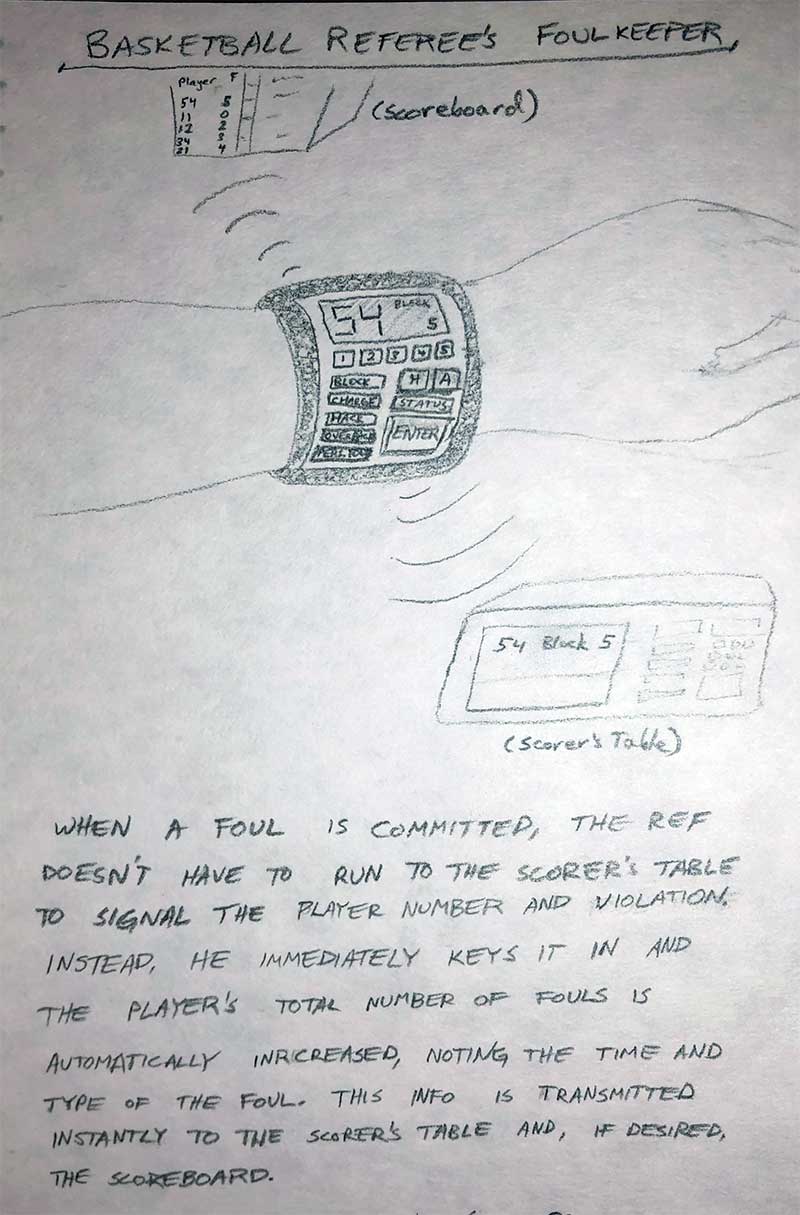 BASKETBALL REFEREE'S FOULKEEPER
Player F
54 5
11 0
12 2
34 3
21 4
(Scoreboard)
54 BLOCK
5
1 2 3 4 5
BLOCK H A
CHARGE STATUS
HACK
ENTER
54 Block 5
(Scorer's Table)
WHEN A FOUL IS COMMITTED, THE REF
DOESN'T HAVE TO RUN TO THE SCORER'S TABLE
TO SIGNAL THE PLAYER NUMBER AND VIOLATION.
INSTEAD, HE IMMEDIATELY KEYS IT IN AND
THE PLAYER'S TOTAL NUMBER OF FOULS IS
AUTOMATICALLY INRICREASED, NOTING THE TIME AND
TYPE OF THE FOUL. THIS INFO IS TRANSMITTED
INSTANTLY TO THE SCORER'S TABLE AND, IF DESIRED,
THE SCOREBOARD.